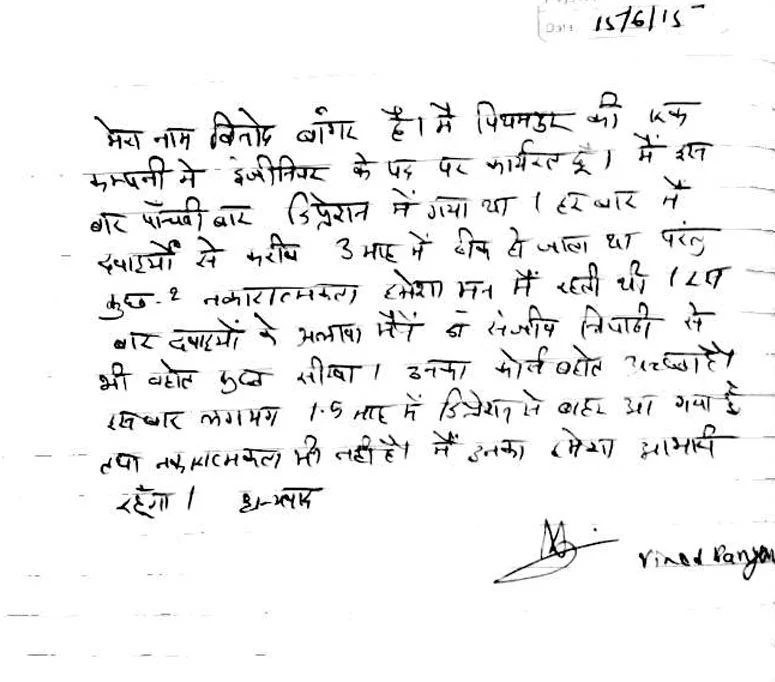 Date 15/6/15
मेरा नाम विनोद बाँगर है। मैं पिथमपुर की एक
कम्पनी में इंजीनियर के पद पर कार्यरत हूँ। मैं इस
बार पाँचवी बार डिप्रेशन में गया था। हर बार मैं
दवाइयों से करीब 3 माह में ठीक हो जाता था परंतु
कुछ-2 नकारात्मकता हमेशा मन में रहती थी। इस
बार दवाइयों के अलावा मैंने डॉ संजीव त्रिपाठी से
भी बहोत कुछ सीखा। उनका कोर्स बहोत अच्छा है।
इस बार लगभग 1.5 माह में डिप्रेशन से बाहर आ गया हूँ
तथा नकारात्मकता भी नहीं है। मैं उनका हमेशा आभारी
रहूँगा। धन्यवाद
Vinod